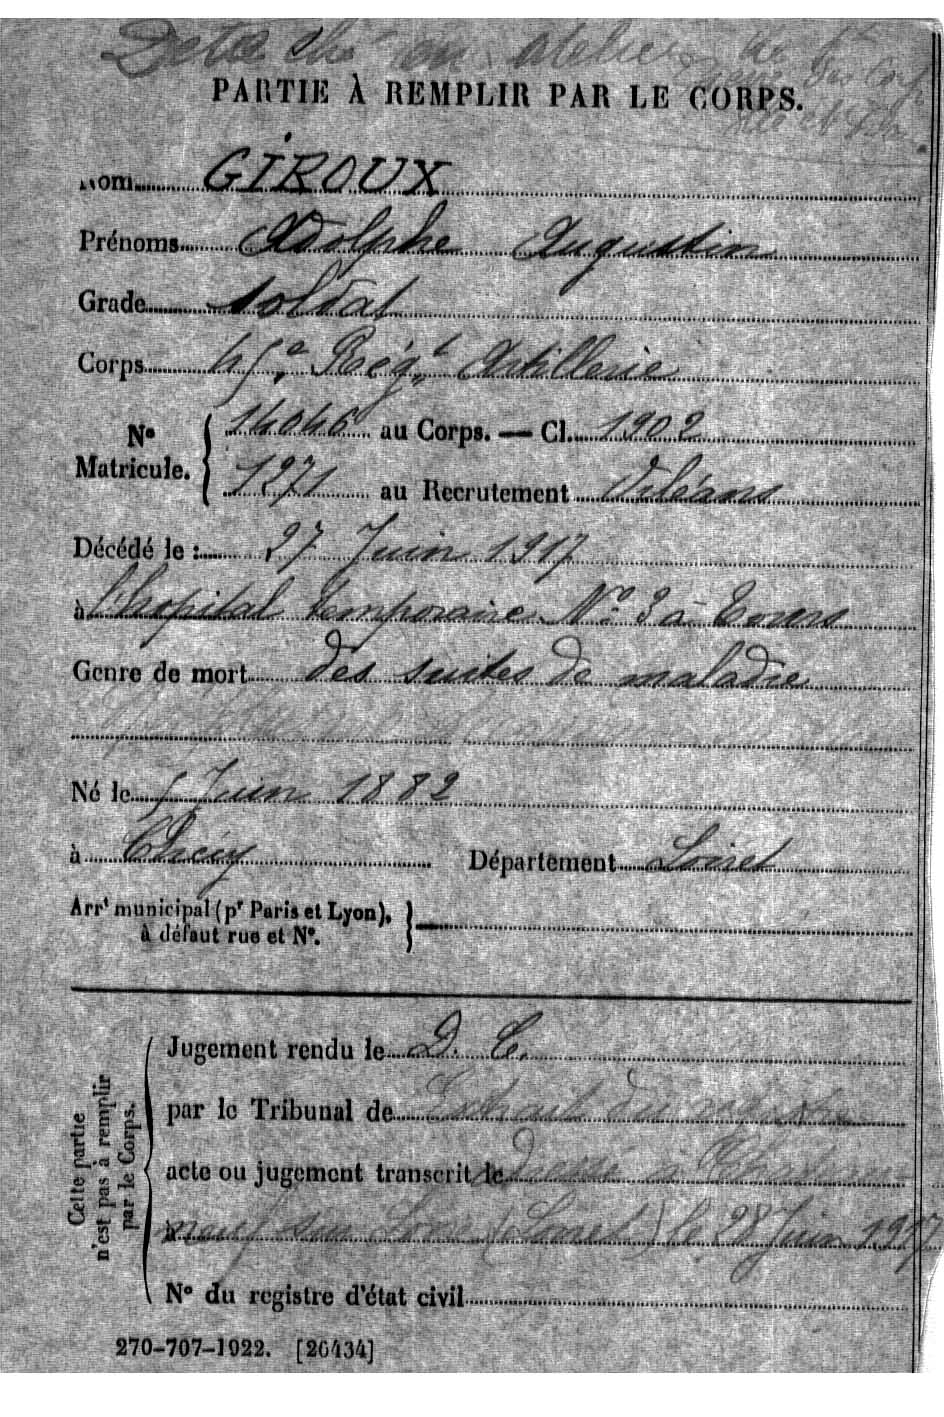 Détaché en atelier de
PARTIE À REMPLIR PAR LE CORPS.
Nom GIROUX
Prénoms Adolphe Augustin
Grade soldat
Corps 45e Régt Artillerie
No Matricule. { 14046 au Corps. — Cl. 1902
1271 au Recrutement Orléans
Décédé le : 27 Juin 1917
à l'hopital temporaire No 3 à Tours
Genre de mort des suites de maladie
Né le Juin 1882
à Chécy Département Loiret
Arrt municipal (pr Paris et Lyon), à défaut rue et No. } —
Cette partie n'est pas à remplir par le Corps.
Jugement rendu le D. C.
par le Tribunal de Extrait du registre
acte ou jugement transcrit le adressé à Chateau
à neuf sur Loire (Loiret) le 28 Juin 1917
No du registre d'état civil
270-707-1922. [26434]